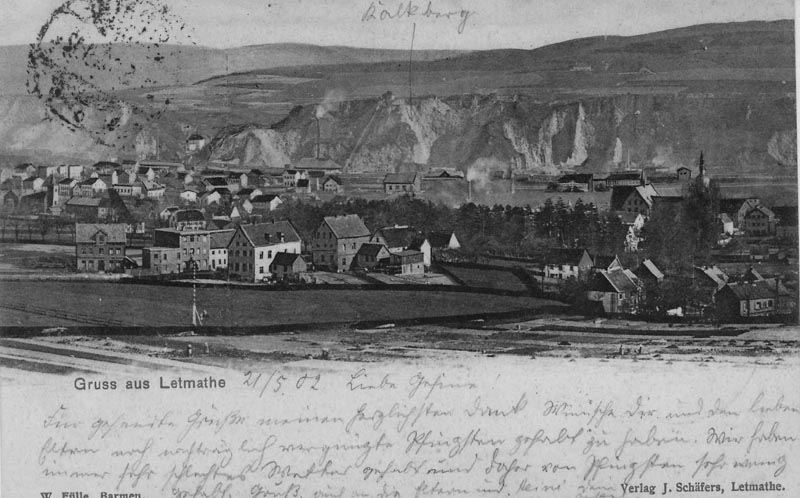 Kalkberg
Gruss aus Letmathe 21/5 02 Liebe Gesine!
Für gesandte Grüße meinen herzlichsten Dank. Wünsche Dir und den lieben
Eltern noch nachträglich vergnügte Pfingsten gehabt zu haben. Wir haben
immer sehr schlechtes Wetter gehabt und daher von Pfingsten sehr wenig
gehabt. Gruß an die Eltern und
W. Fülle, Barmen.
Verlag J. Schäfers, Letmathe.